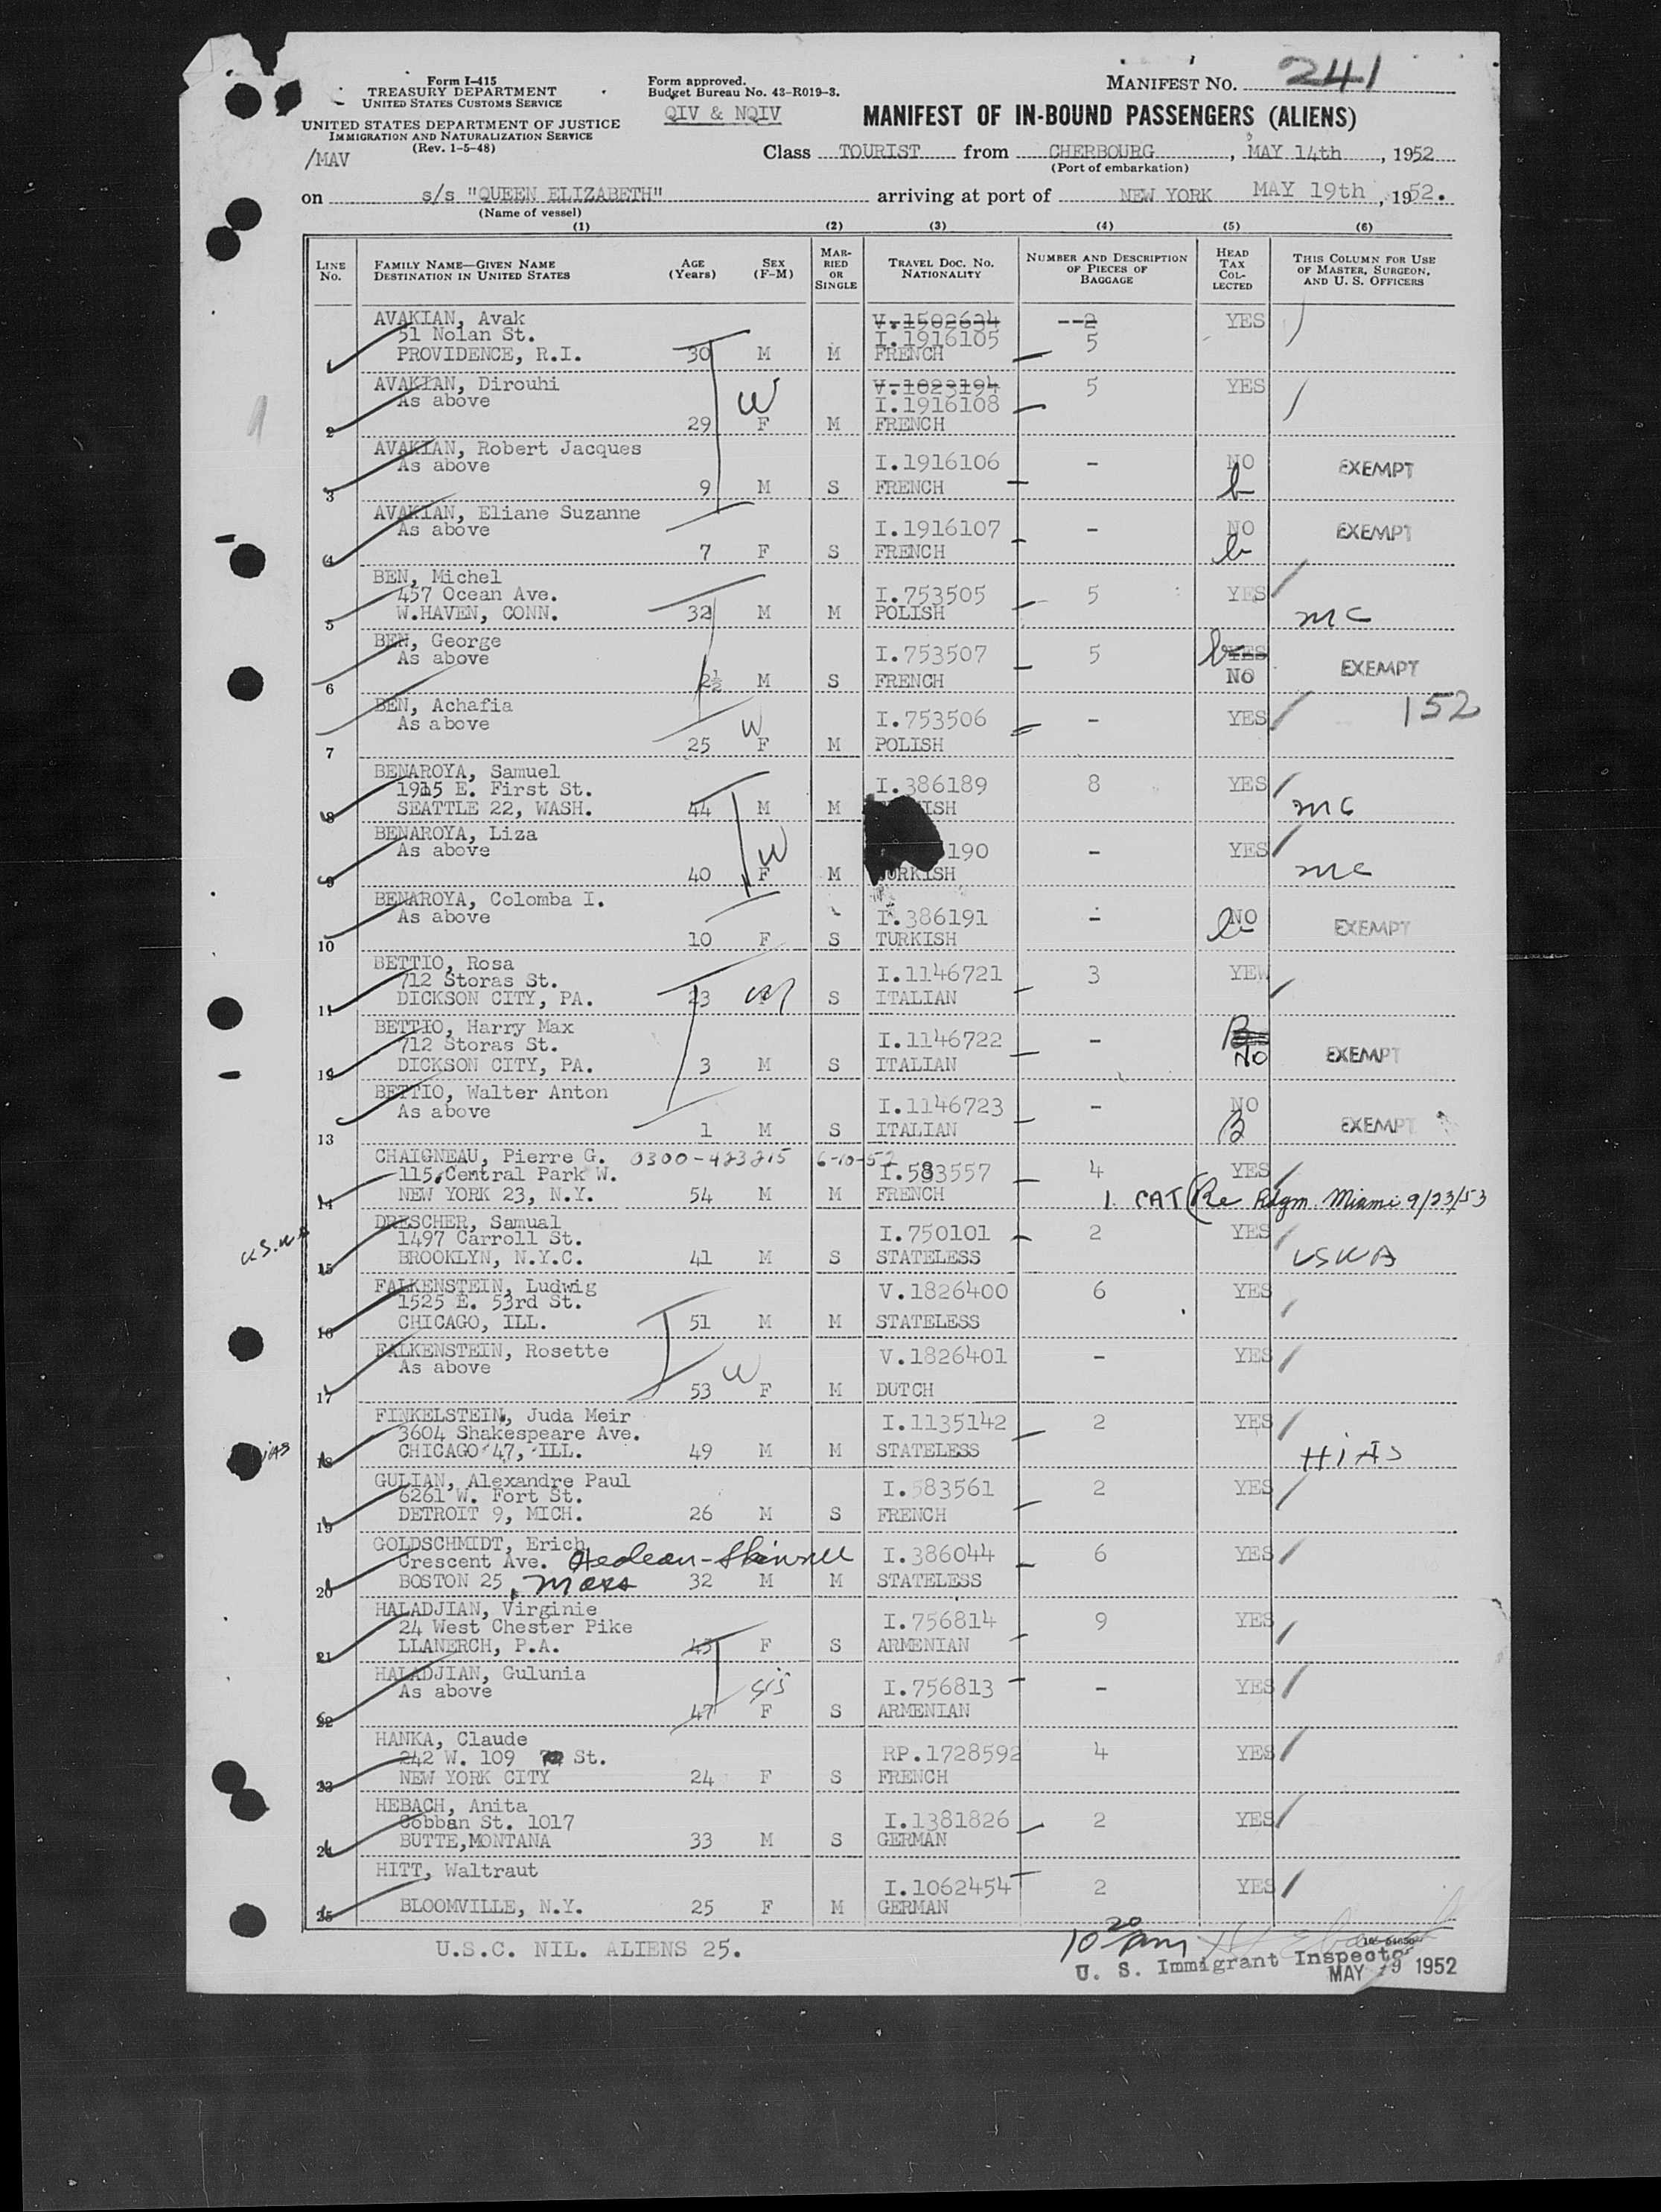 Form I-415
TREASURY DEPARTMENT
UNITED STATES CUSTOMS SERVICE
UNITED STATES DEPARTMENT OF JUSTICE
IMMIGRATION AND NATURALIZATION SERVICE
(Rev. 1-5-48)
/MAV
Form approved.
Budget Bureau No. 43-R019-3.
QIV & NQIV
MANIFEST NO. 241
MANIFEST OF IN-BOUND PASSENGERS (ALIENS)
Class TOURIST from CHERBOURG, MAY 14th, 1952
(Port of embarkation)
on s/s "QUEEN ELIZABETH" arriving at port of NEW YORK MAY 19th, 1952.
(Name of vessel)
(1) (2) (3) (4) (5) (6)
LINE NO. FAMILY NAME—GIVEN NAME DESTINATION IN UNITED STATES AGE (Years) SEX (F-M) MARRIED OR SINGLE TRAVEL DOC. NO. NATIONALITY NUMBER AND DESCRIPTION OF PIECES OF BAGGAGE HEAD TAX COLLECTED THIS COLUMN FOR USE OF MASTER, SURGEON, AND U. S. OFFICERS
AVAKIAN, Avak V.1502634 --2 YES
51 Nolan St. I.1916105 5
PROVIDENCE, R.I. 30 M M FRENCH
AVAKIAN, Dirouhi V.1023194 5 YES
As above W I.1916108
2 29 F M FRENCH
AVAKIAN, Robert Jacques
As above I.1916106 - NO EXEMPT
3 9 M S FRENCH b
AVAKIAN, Eliane Suzanne
As above I.1916107 - NO EXEMPT
4 7 F S FRENCH b
BEN, Michel
457 Ocean Ave. I.753505 5 YES
5 W.HAVEN, CONN. 32 M M POLISH MC
BEN, George
As above I.753507 5 b YES EXEMPT
6 2½ M S FRENCH NO
BEN, Achafia 152
As above W I.753506 - YES
7 25 F M POLISH
BENAROYA, Samuel
1915 E. First St. I.386189 8 YES
8 SEATTLE 22, WASH. 44 M M ISH MC
BENAROYA, Liza
As above W 190 - YES
9 40 F M URKISH MC
BENAROYA, Colomba I.
As above I.386191 - NO EXEMPT
10 10 F S TURKISH
BETTIO, Rosa
712 Storas St. I.1146721 3 YEW
11 DICKSON CITY, PA. 23 S ITALIAN
BETTIO, Harry Max
712 Storas St. I.1146722 -
12 DICKSON CITY, PA. 3 M S ITALIAN NO EXEMPT
BETTIO, Walter Anton
As above I.1146723 - NO EXEMPT
13 1 M S ITALIAN B
CHAIGNEAU, Pierre G. 0300-423215 6-10-52
115 Central Park W. I.583557 4 YES
14 NEW YORK 23, N.Y. 54 M M FRENCH 1. CAT (Re Adgm. Miami 9/23/53
DRESCHER, Samual
1497 Carroll St. I.750101 2 YES
15 BROOKLYN, N.Y.C. 41 M S STATELESS USNA
FALKENSTEIN, Ludwig
1525 E. 53rd St. V.1826400 6 YES
16 CHICAGO, ILL. 51 M M STATELESS
FALKENSTEIN, Rosette
As above W V.1826401 - YES
17 53 F M DUTCH
FINKELSTEIN, Juda Meir
3604 Shakespeare Ave. I.1135142 2 YES
18 CHICAGO 47, ILL. 49 M M STATELESS HIAS
GULIAN, Alexandre Paul
6261 W. Fort St. I.583561 2 YES
19 DETROIT 9, MICH. 26 M S FRENCH
GOLDSCHMIDT, Erich
Crescent Ave. I.386044 6 YES
20 BOSTON 25, Mass 32 M M STATELESS
HALADJIAN, Virginie
24 West Chester Pike I.756814 9 YES
21 LLANERCH, P.A. 45 F S ARMENIAN
HALADJIAN, Gulunia
As above sis I.756813 - YES
22 47 F S ARMENIAN
HANKA, Claude
242 W. 109 St. RP.1728592 4 YES
23 NEW YORK CITY 24 F S FRENCH
HEBACH, Anita
Cobban St. 1017 I.1381826 2 YES
24 BUTTE,MONTANA 33 M S GERMAN
HITT, Waltraut
I.1062454 2 YES
25 BLOOMVILLE, N.Y. 25 F M GERMAN
U.S.C. NIL. ALIENS 25.
10 20 am
U. S. Immigrant Inspector
MAY 19 1952